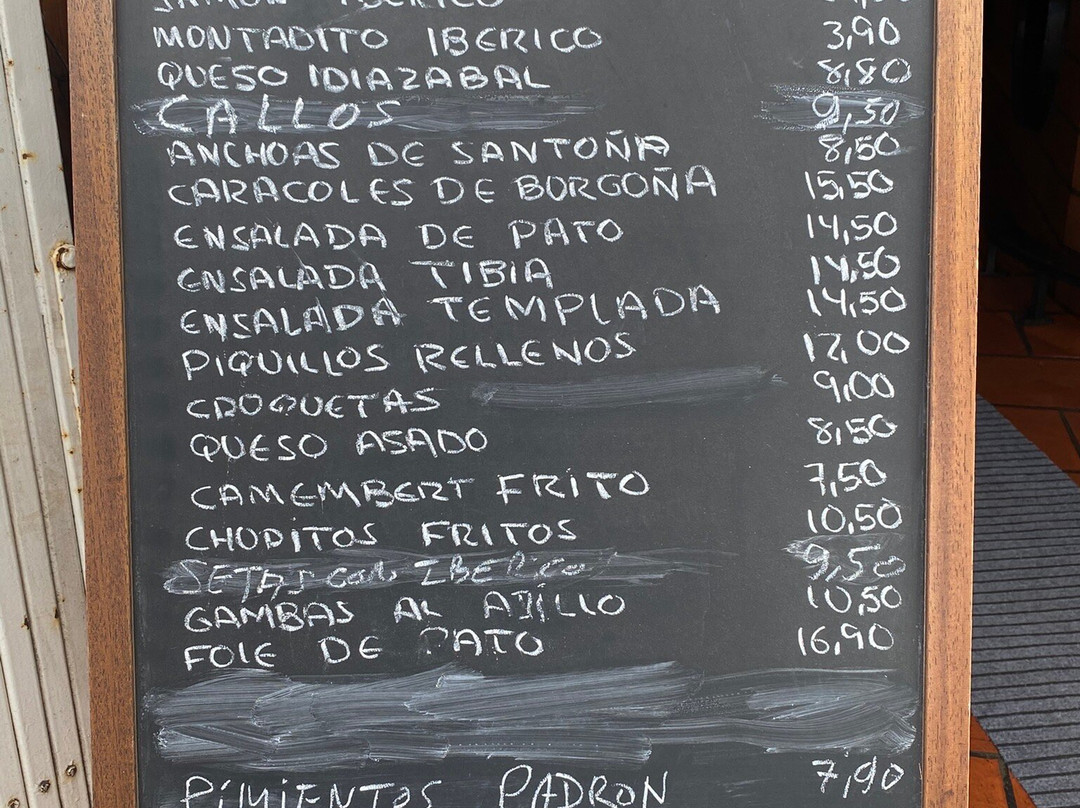 JAMON IBERICO
MONTADITO IBERICO 3,90
QUESO IDIAZABAL 8,80
CALLOS 9,50
ANCHOAS DE SANTOÑA 8,50
CARACOLES DE BORGOÑA 15,50
ENSALADA DE PATO 14,50
ENSALADA TIBIA 14,50
ENSALADA TEMPLADA 14,50
PIQUILLOS RELLENOS 12,00
CROQUETAS 9,00
QUESO ASADO 8,50
CAMEMBERT FRITO 7,50
CHOPITOS FRITOS 10,50
SETAS con IBERICO 9,50
GAMBAS AL AJILLO 10,50
FOIE DE PATO 16,90
PIMIENTOS PADRON 7,90